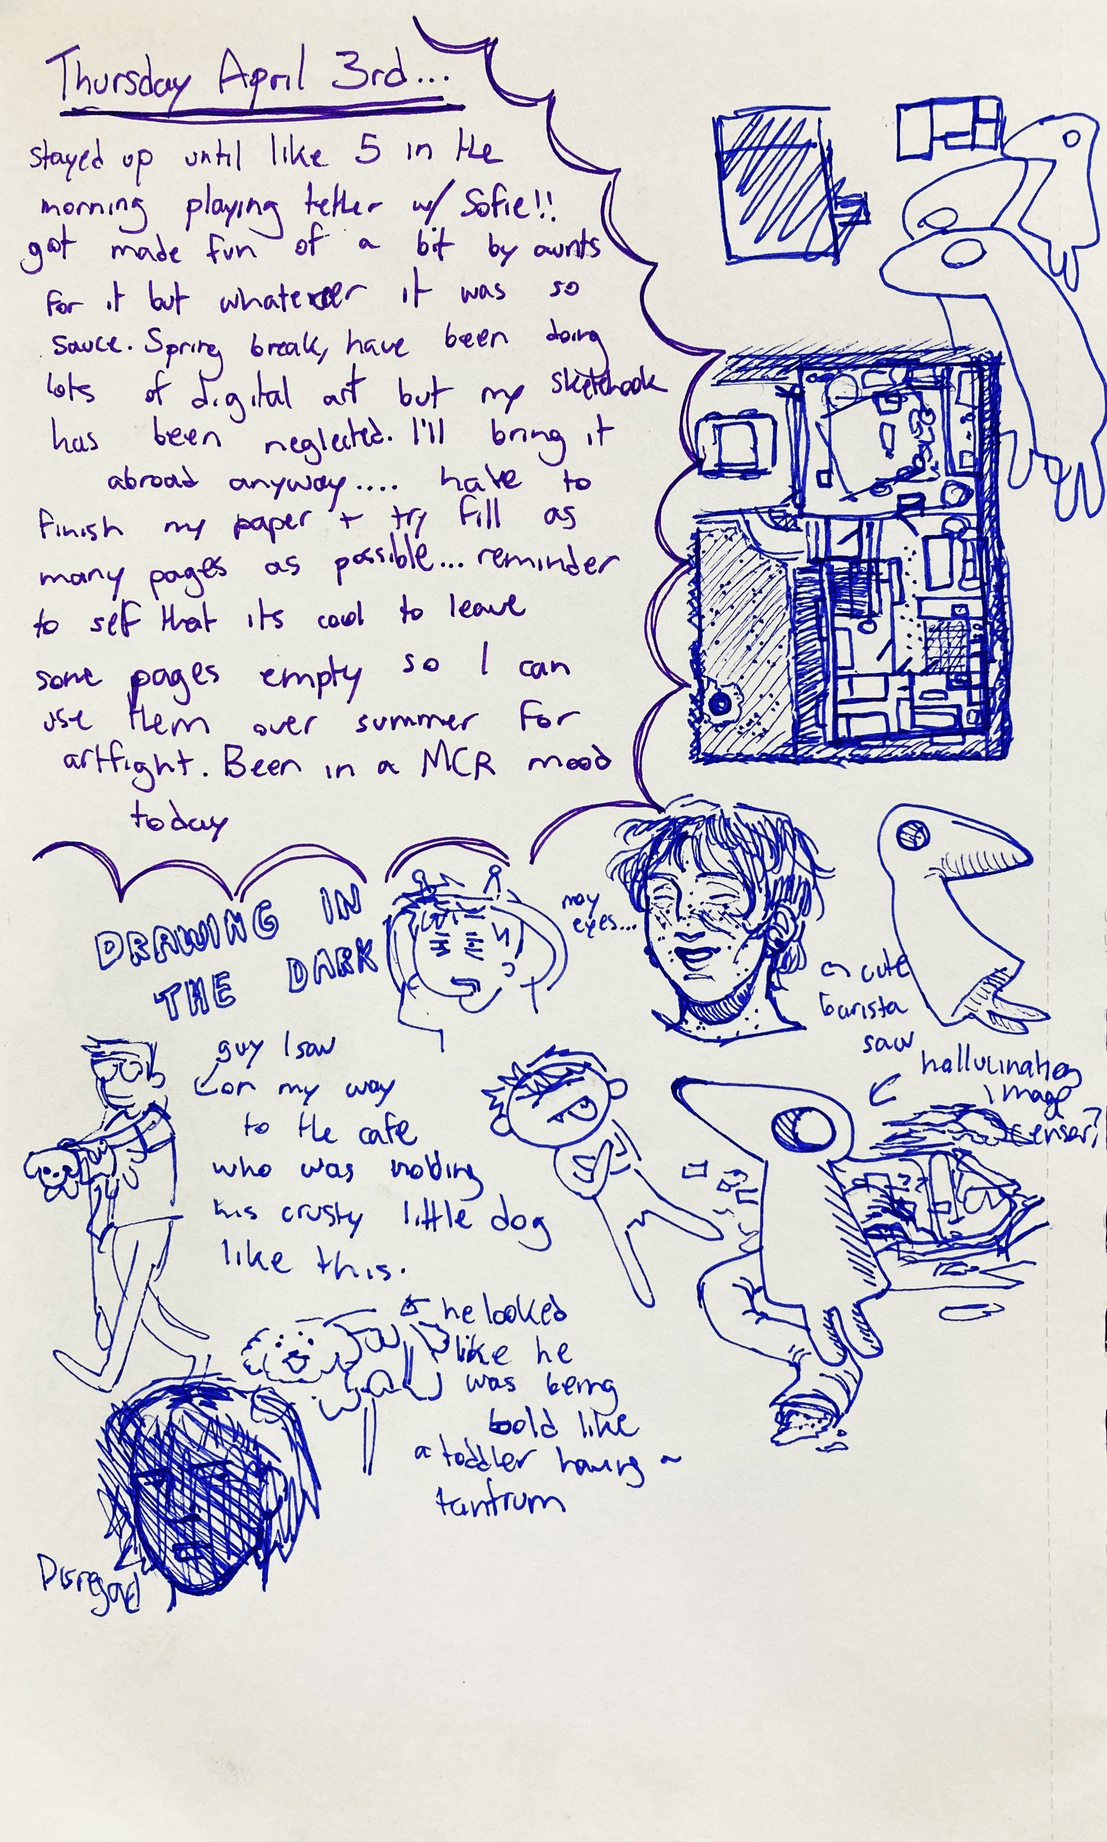 Thursday April 3rd...
stayed up until like 5 in the
morning playing tether w/ Sofie!!
got made fun of a bit by aunts
for it but whatever it was so
sauce. Spring break, have been doing
lots of digital art but my sketchook
has been neglected. I'll bring it
abroad anyway.... have to
finish my paper + try fill as
many pages as possible... reminder
to self that its cool to leave
some pages empty so I can
use them over summer for
artfight. Been in a MCR mood
today
DRAWING IN
THE DARK
my
eyes...
a cute
barista
saw
guy I saw
on my way
to the cafe
who was holding
his crusty little dog
like this.
hallucination
image
he looked
like he
was being
bold like
a toddler having a
tantrum
Disregard